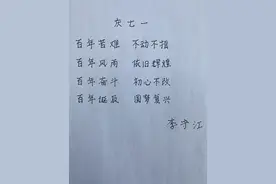 庆七一
百年苦难 不动不摇
百年风雨 依旧辉煌
百年奋斗 初心不改
百年征辰 国繁复兴
李守江